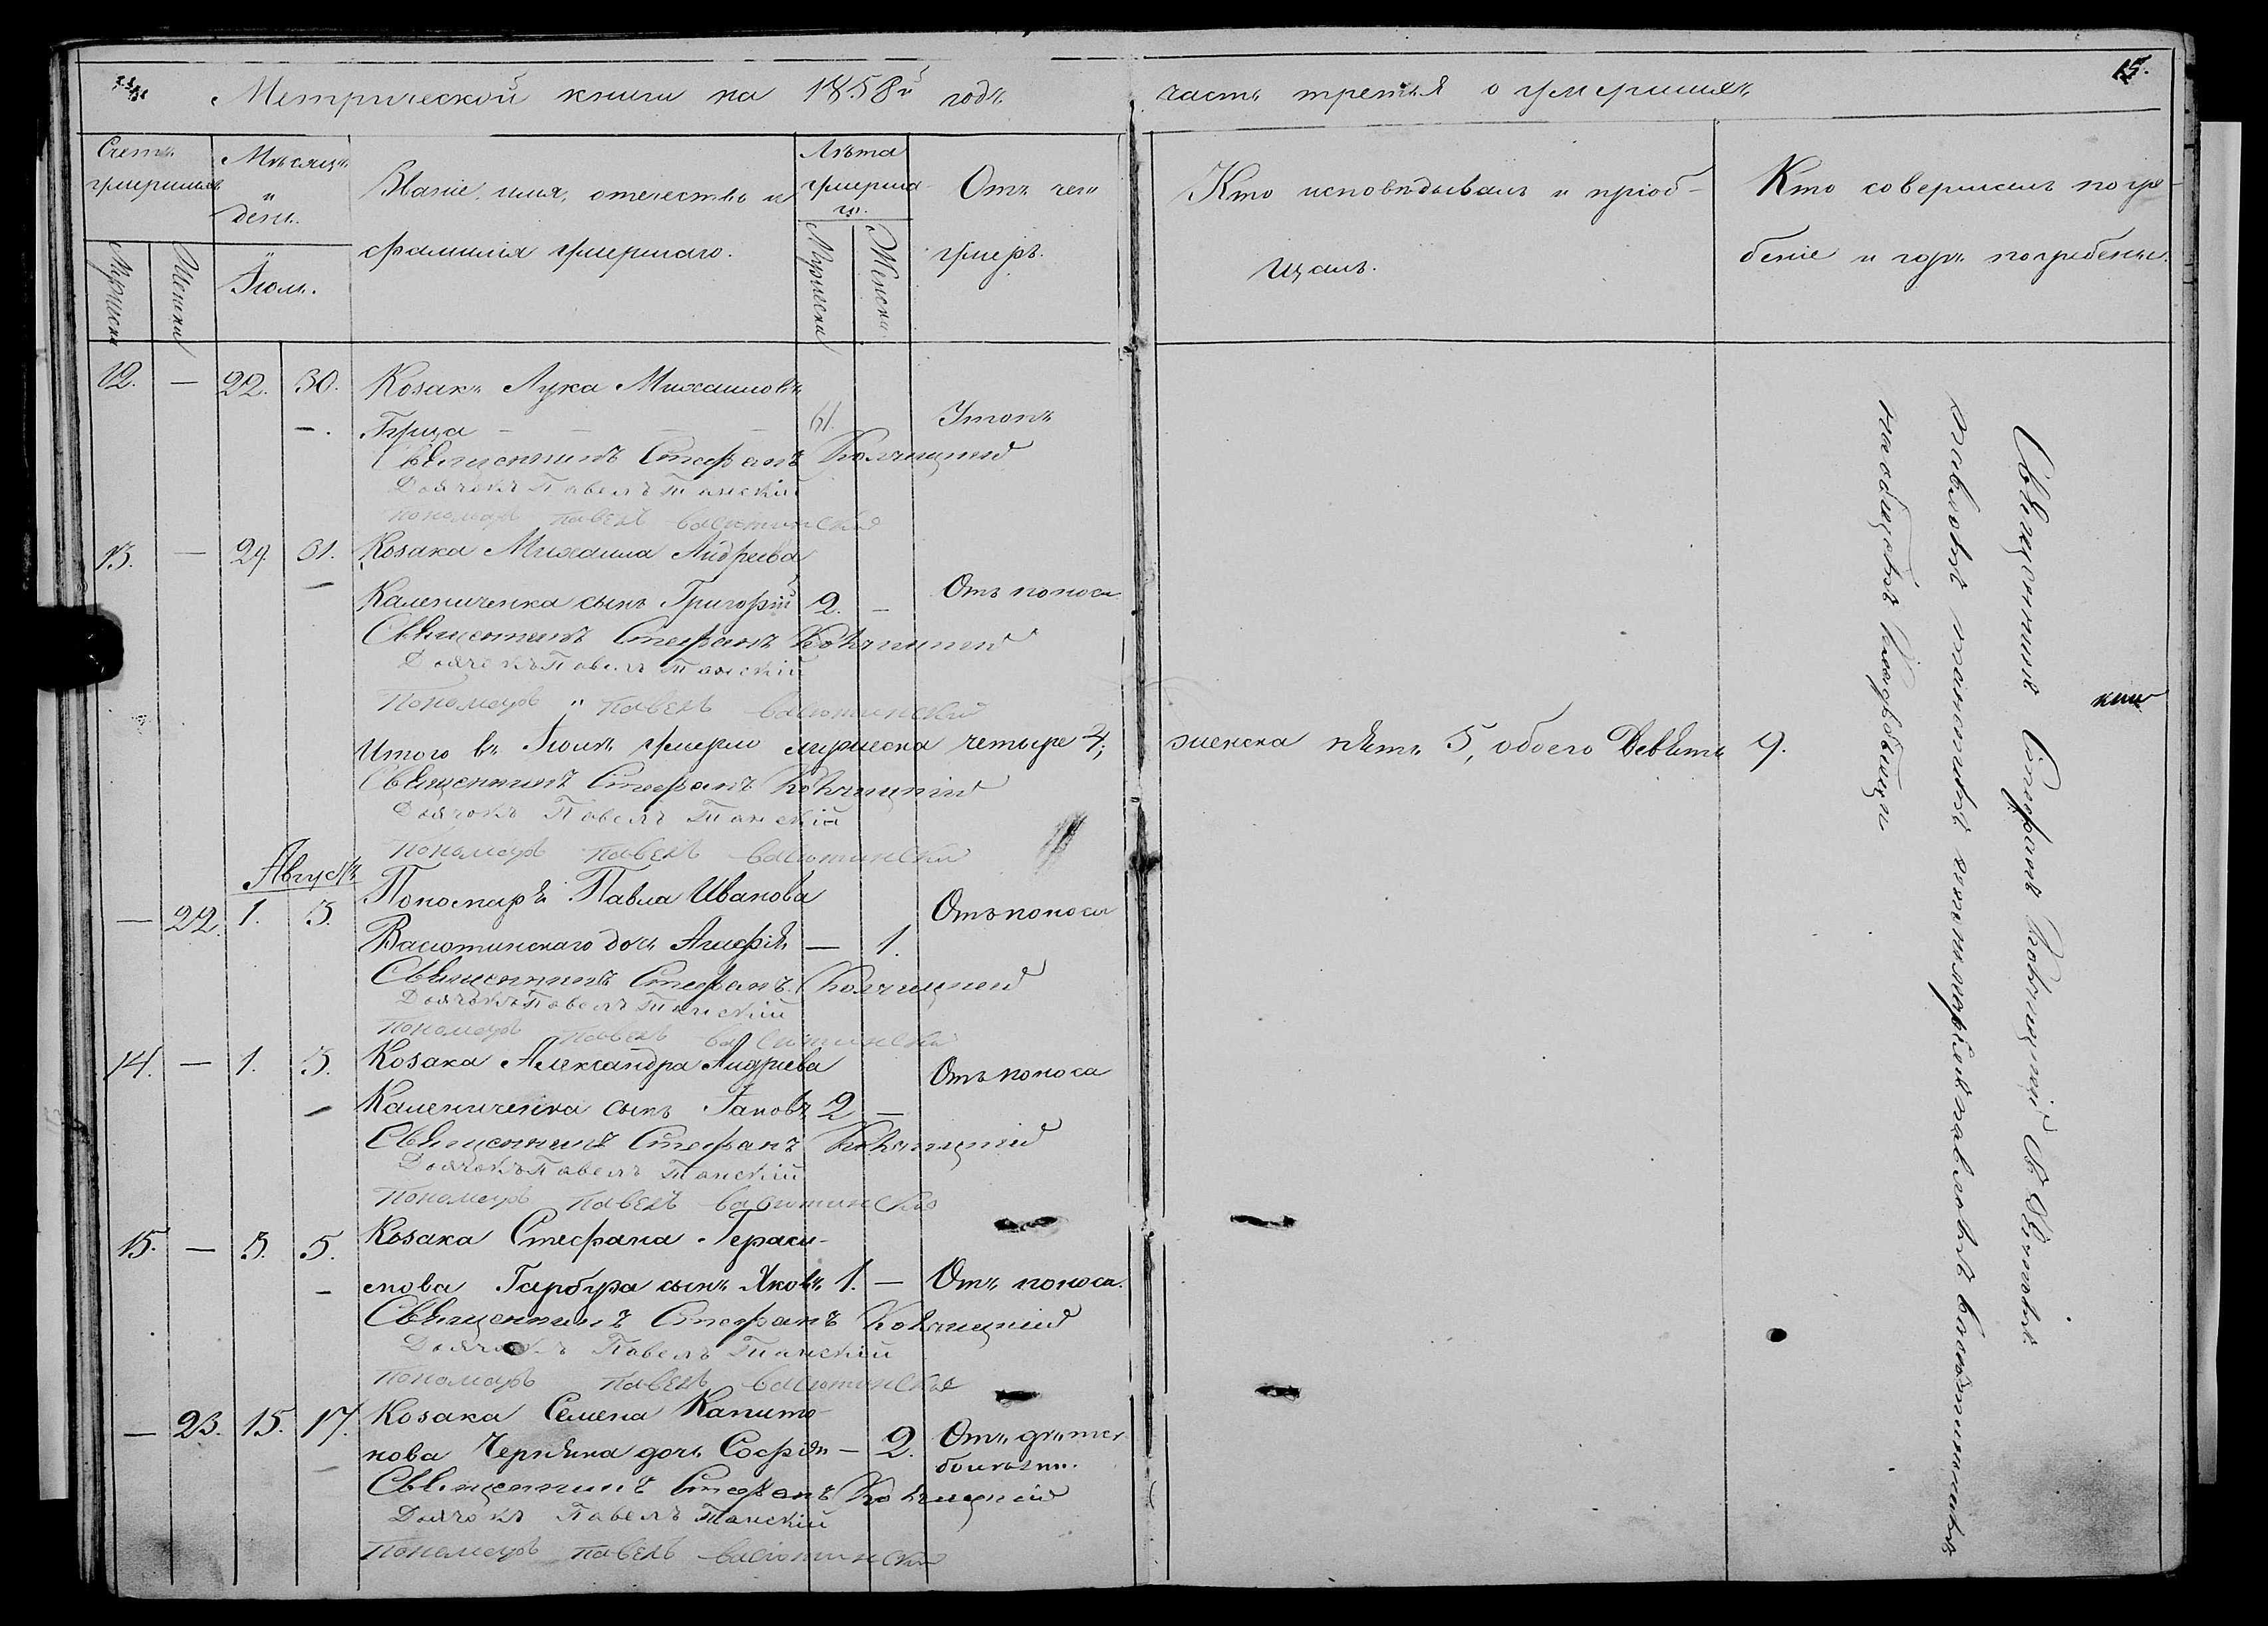 Метрической книги на 1858й годъ
часть третья о умершихъ
15.
Счетъ умершихъ
Мѣсяцъ и день.
Званіе, имя, отечество и фамилія умершаго.
Лѣта умерша-го.
Отъ чего умеръ.
Кто исповѣдывалъ и пріоб-
щалъ.
Кто совершилъ погре-
беніе и гдѣ погребены.
Мужеска
Женска
Іюль.
Мужеска
Женска
12. — 22. 30. Козакъ Лука Михаиловъ
61. Утопъ
Священникъ Стефанъ Ковчицкій
Дьячокъ Павелъ Танскій
Пономарь Павелъ Васютинскій
13. — 29. 31. Козака Михаила Андреева
Калениченка сынъ Григорій 2. — Отъ поноса
Священникъ Стефанъ Ковчицкій
Дьячокъ Павелъ Танскій
Пономарь Павелъ Васютинскій
Итого въ Іюлѣ умерло мужеска четыре 4, женска пять 5, обоего Девять 9.
Священникъ Стефанъ Ковчицкій
Дьячокъ Павелъ Танскій
Пономарь Павелъ Васютинскій
Августъ
— 22. 1. 3. Пономаря Павла Иванова
Васютинскаго дочь Агафія — 1. Отъ поноса
Священникъ Стефанъ Ковчицкій
Дьячокъ Павелъ Танскій
Пономарь Павелъ Васютинскій
14. — 1. 3. Козака Александра Андреева
Калениченка сынъ Іаковъ 2 — Отъ поноса
Священникъ Стефанъ Ковчицкій
Дьячокъ Павелъ Танскій
Пономарь Павелъ Васютинскій
15. — 3. 5. Козака Стефана Гераси-
мова Гарбуза сынъ Яковъ 1. — Отъ поноса.
Священникъ Стефанъ Ковчицкій
Дьячокъ Павелъ Танскій
Пономарь Павелъ Васютинскій
— 23. 15. 17. Козака Семена Капито-
нова Черняка дочь Софія — 2. Отъ
болѣзни.
Священникъ Стефанъ Ковчицкій
Дьячокъ Павелъ Танскій
Пономарь Павелъ Васютинскій
Священникъ Стефанъ Ковчицкій съ
Павломъ Танскимъ и пономаремъ Павломъ Васютинскимъ
на общемъ кладбищѣ